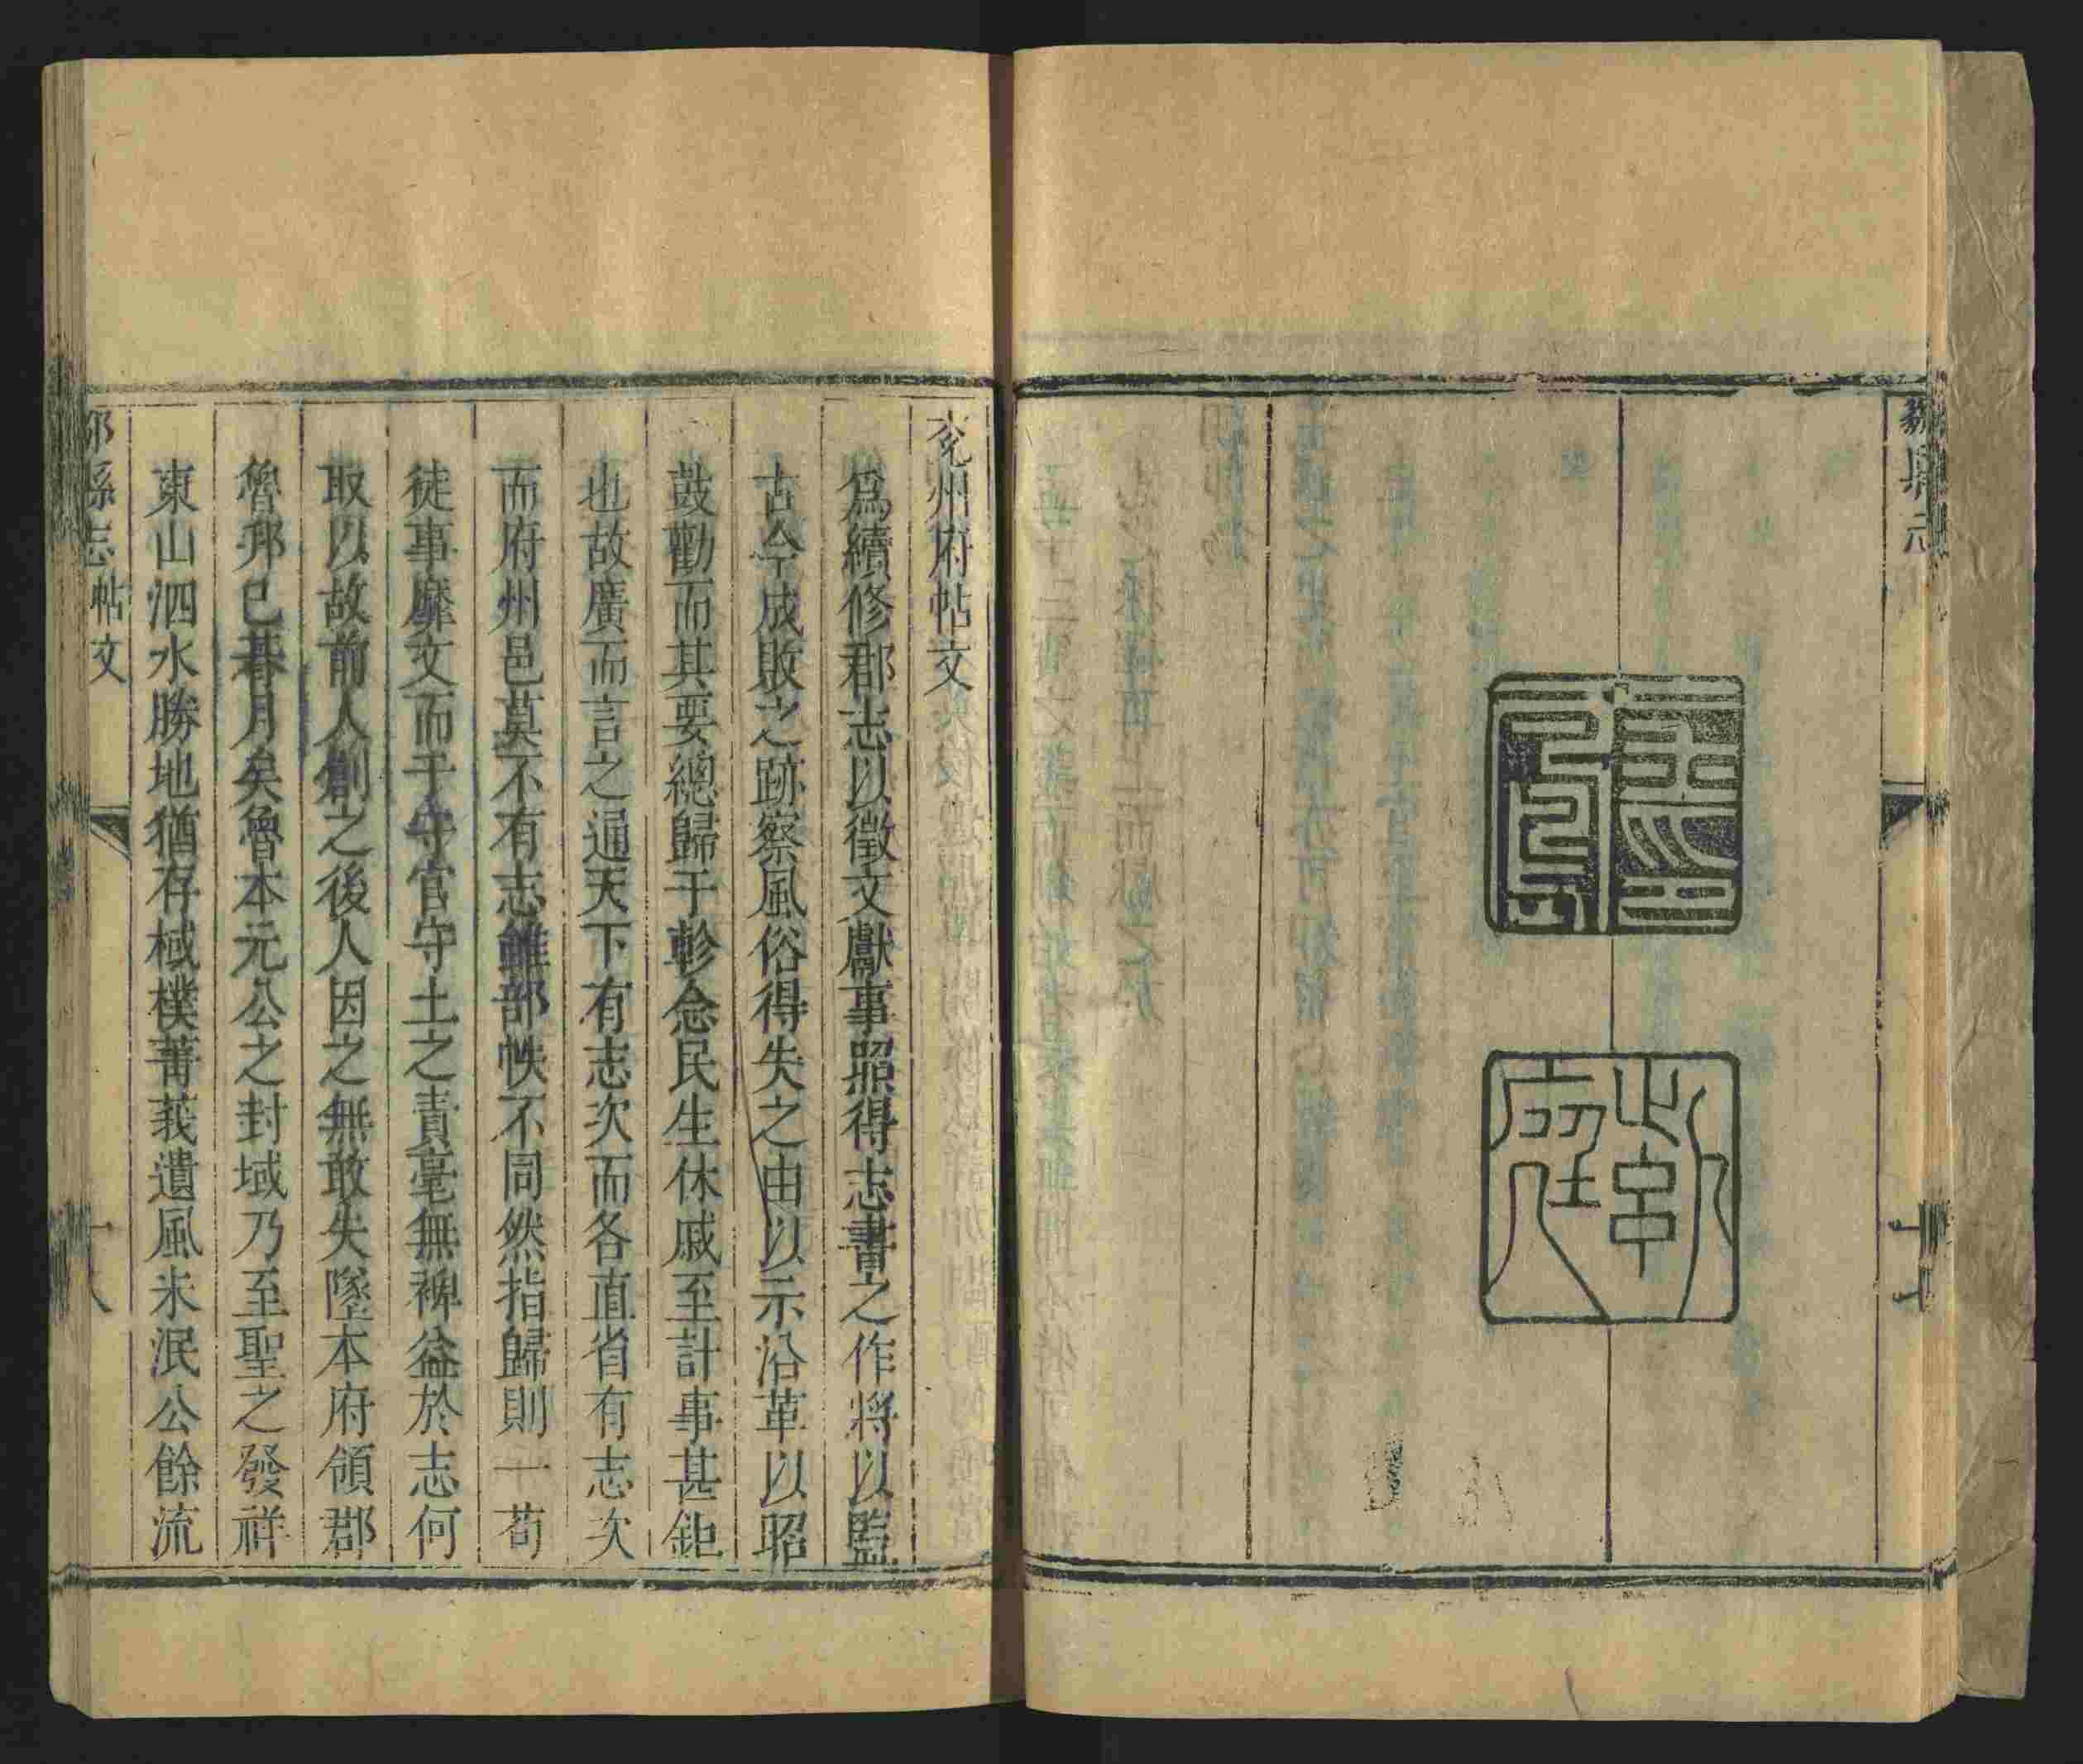 十七
兖州府帖文
爲續修郡志以徵文獻事照得志書之作將以監
古今成敗之跡察風俗得失之由以示沿革以昭
鼓勸而其要總歸于軫念民生休戚至計事甚鉅
也故廣而言之通天下有志次而各直省有志次
而府州邑莫不有志雖部帙不同然指歸則一苟
徒事靡文而于守官守土之責毫無裨益於志何
取以故前人創之後人因之無敢失墜本府領郡
魯邦已朞月矣魯本元公之封域乃至聖之發祥
東山泗水勝地猶存棫樸菁莪遺風未泯公餘流
縣志 帖文